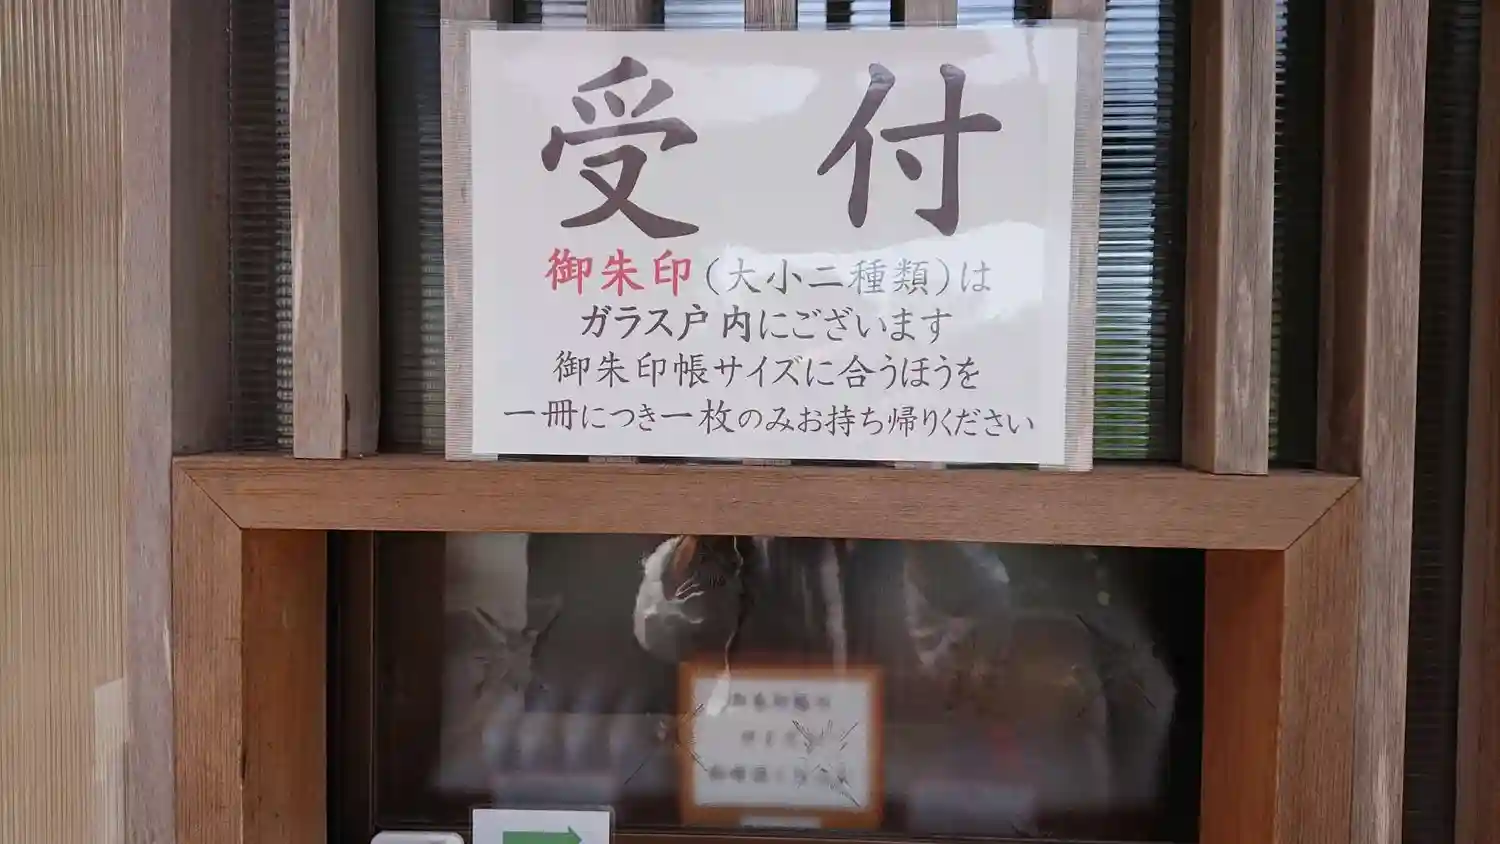 受付
御朱印(大小二種類)は
ガラス戸内にございます
御朱印帳サイズに合うほうを
一冊につき一枚のみお持ち帰りください